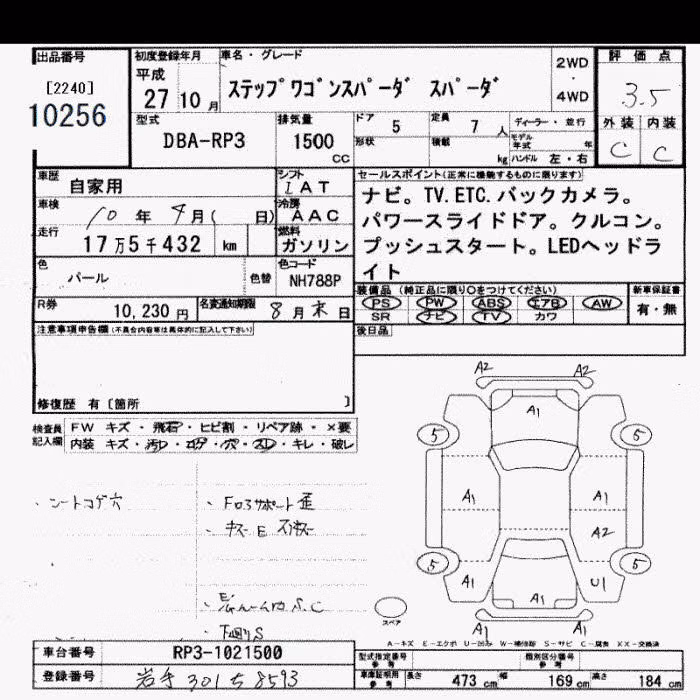 出品番号
[2240]
10256
初度登録年月
平成
27 10 月
車名・グレード
ステップワゴンスパーダ スパーダ
2WD
・
4WD
評価点
3.5
外装 内装
C C
型式
DBA-RP3
排気量
1500
CC
ドア 5
定員 7 人
ディーラー・並行
形状
積載 kg
モデル年式 年
ハンドル 左・右
車歴
自家用
シフト
IAT
車検
10 年 9 月( 日)
冷房
AAC
走行
17万5千432 km
燃料
ガソリン
色
パール
色替
色コード
NH788P
R券
10,230 円
名変通知期限
8 月 末 日
セールスポイント(正常に機能するものに限ります)
ナビ。TV.ETC.バックカメラ。
パワースライドドア。クルコン。
プッシュスタート。LEDヘッドラ
イト
装備品 (純正品に限り○をつけてください)
PS PW ABS エアB AW
SR ナビ TV カワ
新車保証書
有・無
後日品
注意事項申告欄(不具合内容等は具体的に記入して下さい)
修復歴 有〔箇所 〕
検査員
記入欄
FW キズ・飛石・ヒビ割・リペア跡・×要
内装 キズ・汚レ・コゲ・穴・スレ・キレ・破レ
・シートコゲ穴
・Fロアサポート歪
下廻りS
A2 A2
A1
5 5
A1 A1
A2
5 5
A1 U1
A1
A1 A1
スペア
A-キズ E-エクボ U-凹み W-補修跡 S-サビ C-腐食 XX-交換済
車台番号
RP3-1021500
登録番号
岩手 301 ち 8593
型式指定番号
参考
類別区分番号
参考
車庫証明用
参考
長さ 473 cm 幅 169 cm 高さ 184 cm